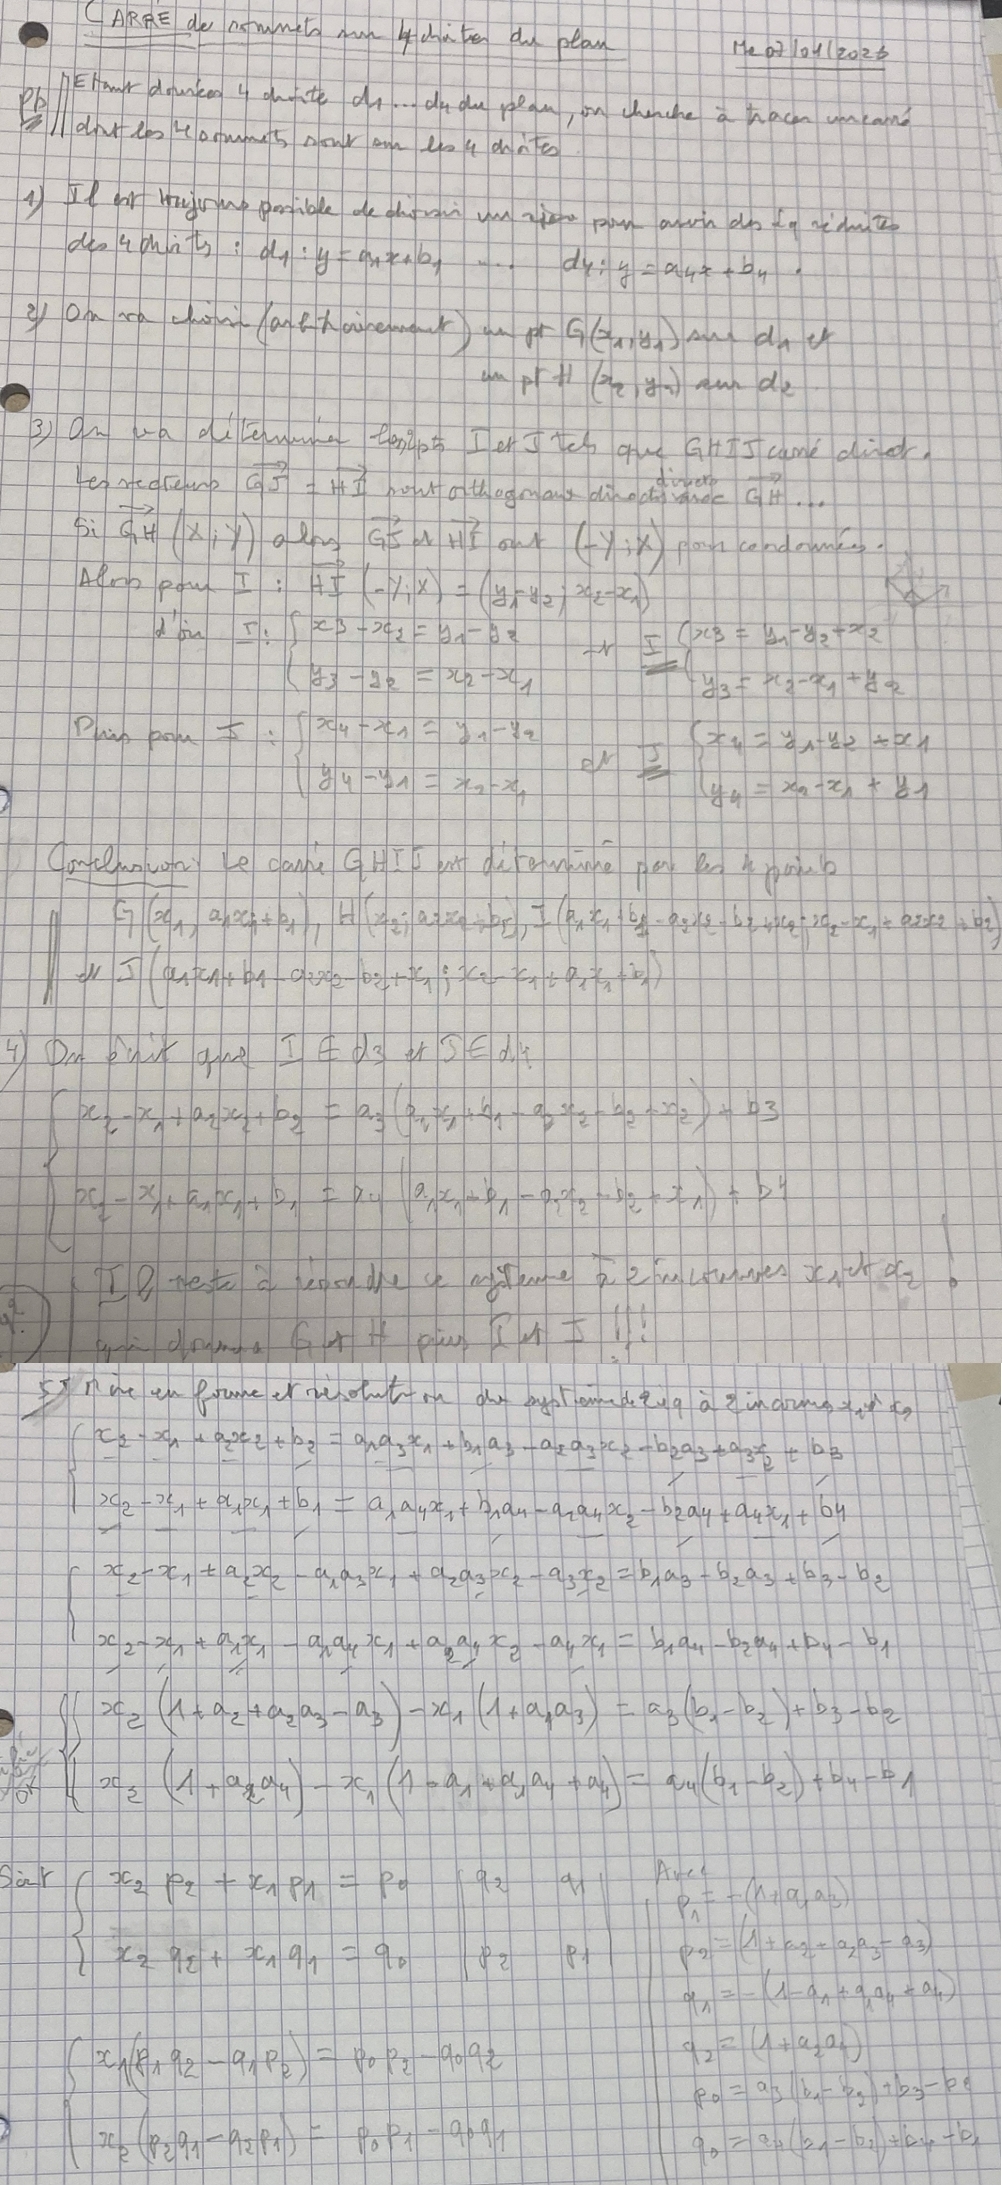 CARRE de sommets sur 4 droites du plan
Me 07/01/2026
Pb Etant données 4 droite d1...d4 du plan, on cherche à tracer un carré
dont les 4 sommets sont sur les 4 droites
1) Il est toujours possible de choisir un pour avoir des éq réduites
des 4 droites : d1 : y = a1x+b1 .... d4 : y = a4x + b4.
2) On va choisir (arbitrairement) un pt G(x1, y1) sur d1 et
un pt H (x2, y2) sur d2
3) On va déterminer les 2 pts I et J tels que GHIJ carré direct.
Les vecteurs GJ = HI sont orthogonaux directs avec GH...
Si GH (X; Y) alors GJ et HI ont (-Y; X) pour coordonnées.
Alors pour I : HI (-Y; X) = (y1-y2; x2-x1)
d'où I : { x3 - x2 = y1 - y2 et I { x3 = y1 - y2 + x2
y3 - y2 = x2 - x1 y3 = x2 - x1 + y2
Puis pour J : { x4 - x1 = y1 - y2 et J { x4 = y1 - y2 + x1
y4 - y1 = x2 - x1 y4 = x2 - x1 + y1
Conclusion : Le carré GHIJ est déterminé par les 4 points
G (x1, a1x1+b1), H (x2; a2x2+b2), I (a1x1+b1-a2x2-b2+x2; x2-x1+a2x2+b2)
et J (a1x1+b1-a2x2-b2+x1; x2-x1+a1x1+b1)
4) On écrit que I ∈ d3 et J ∈ d4
{ x2 - x1 + a2x2 + b2 = a3 (a1x1 + b1 - a2x2 - b2 + x2) + b3
x2 - x1 + a1x1 + b1 = a4 (a1x1 + b1 - a2x2 - b2 + x1) + b4
Il reste à résoudre ce système à 2 inconnues x1 et x2 !
qui donnera G et H puis I et J !!!
5) Mise en forme et résolution du système de 2 éq à 2 inconnues x1 et x2
{ x2 - x1 + a2x2 + b2 = a1a3x1 + b1a3 - a2a3x2 - b2a3 + a3x2 + b3
x2 - x1 + a1x1 + b1 = a1a4x1 + b1a4 - a2a4x2 - b2a4 + a4x1 + b4
{ x2 - x1 + a2x2 - a1a3x1 + a2a3x2 - a3x2 = b1a3 - b2a3 + b3 - b2
x2 - x1 + a1x1 - a1a4x1 + a2a4x2 - a4x1 = b1a4 - b2a4 + b4 - b1
{ x2 (1 + a2 + a2a3 - a3) - x1 (1 + a1a3) = a3(b1-b2) + b3 - b2
x2 (1 + a2a4) - x1 (1 - a1 + a1a4 + a4) = a4(b1-b2) + b4 - b1
Soit { x2 p2 + x1 p1 = p0 | q2 q1 |
x2 q2 + x1 q1 = q0 | p2 p1 |
{ x1(p1q2 - q1p2) = p0p2 - q0q2
x2(p2q1 - q2p1) = p0p1 - q0q1
Avec
p1 = -(1+a1a3)
p2 = (1+a2+a2a3-a3)
q1 = -(1-a1+a1a4+a4)
q2 = (1+a2a4)
p0 = a3(b1-b2)+b3-b2
q0 = a4(b1-b2)+b4-b1